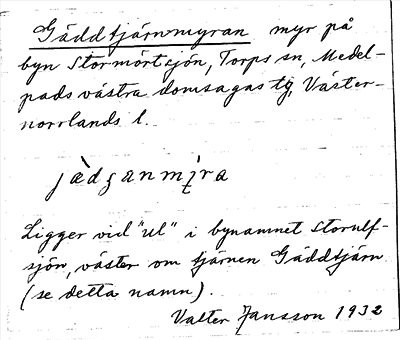 Gäddtjärnmyran myr på
byn Stormörtsjön, Torps sn, Medel-
pads västra domsagas tg, Väster-
norrlands l.
Ligger vid "ul" i bynamnet Storulf-
sjön, väster om tjärnen Gäddtjärn
(se detta namn).
Valter Jansson 1932